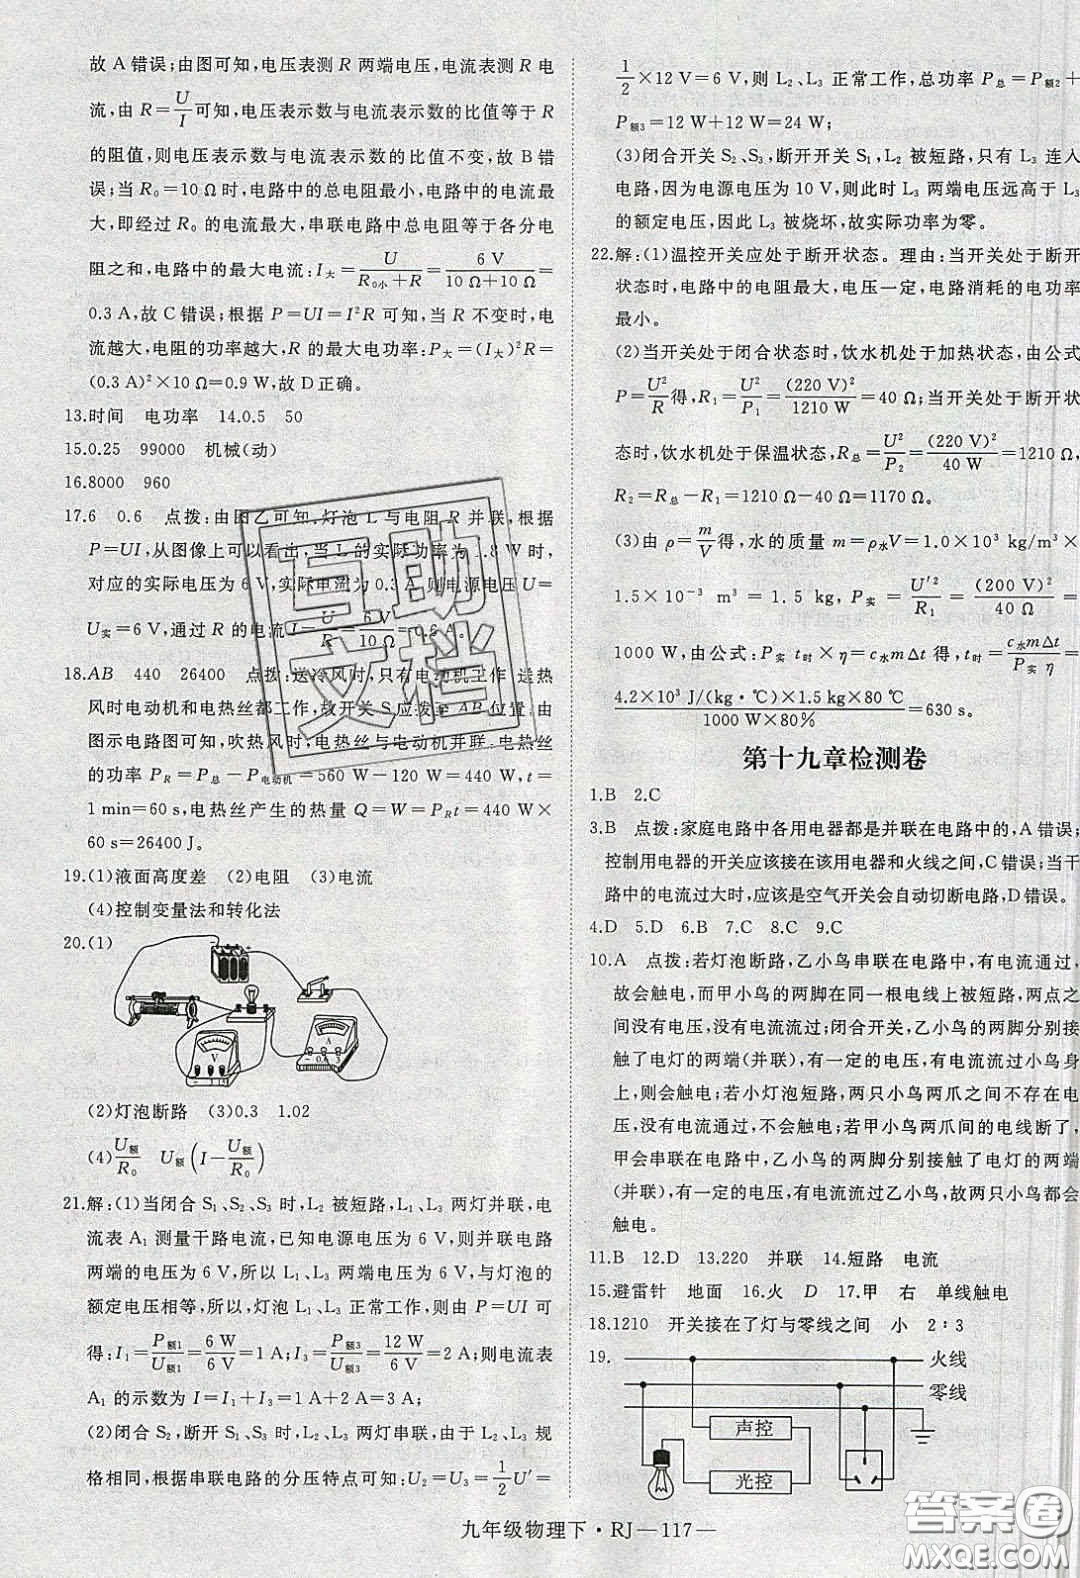 故 A 错误；由图可知，电压表测 R 两端电压，电流表测 R 电
流，由 R=U/I 可知，电压表示数与电流表示数的比值等于 R
的阻值，则电压表示数与电流表示数的比值不变，故 B 错
误；当 R₀=10 Ω 时，电路中的总电阻最小，电路中的电流最
大，即经过 R₀ 的电流最大，串联电路中的总电阻等于各分电
阻之和，电路中的最大电流：I大=U/(R₀小+R)=6 V/(10 Ω+10 Ω)=
0.3 A，故 C 错误；根据 P=UI=I²R 可知，当 R 不变时，电
流越大，电阻的功率越大，R 的最大电功率：P大=(I大)²R=
(0.3 A)²×10 Ω=0.9 W，故 D 正确。
13.时间　电功率　14.0.5　50
15.0.25　99000　机械(动)
16.8000　960
17.6　0.6　点拨：由图乙可知，灯泡 L 与电阻 R 并联，根据
P=UI，从图像上可以看出，当 L 的实际功率为 1.8 W 时，
对应的实际电压为 6 V，实际电流为 0.3 A，则电源电压 U=
U实=6 V，通过 R 的电流 I=U/R=6 V/10 Ω=0.6 A。
18.AB　440　26400　点拨：送冷风时，只有电动机工作，送热
风时电动机和电热丝都工作，故开关 S 应拨至 AB 位置；由
图示电路图可知，吹热风时，电热丝与电动机并联，电热丝
的功率 P_R=P总−P电动机=560 W−120 W=440 W，t=
1 min=60 s，电热丝产生的热量 Q=W=P_R t=440 W×
60 s=26400 J。
19.(1)液面高度差　(2)电阻　(3)电流
(4)控制变量法和转化法
20.(1)
V
A
(2)灯泡断路　(3)0.3　1.02
(4)U额/R₀　U额(I−U额/R₀)
21.解：(1)当闭合 S₁、S₂、S₃ 时，L₂ 被短路，L₁、L₃ 两灯并联，电
流表 A₁ 测量干路电流，已知电源电压为 6 V，则并联电路
两端的电压为 6 V，所以 L₁、L₃ 两端的电压为 6 V，与灯泡的
额定电压相等，所以，灯泡 L₁、L₃ 正常工作，则由 P=UI 可
得：I₁=P额1/U额1=6 W/6 V=1 A；I₃=P额3/U额3=12 W/6 V=2 A；则电流表
A₁ 的示数为 I=I₁+I₃=1 A+2 A=3 A；
(2)闭合 S₂，断开 S₁、S₃ 时，L₂、L₃ 两灯串联，由于 L₂、L₃ 规
格相同，根据串联电路的分压特点可知：U₂=U₃=1/2 U′=
1/2×12 V=6 V，则 L₂、L₃ 正常工作，总功率 P总=P额2+
P额3=12 W+12 W=24 W；
(3)闭合开关 S₂、S₃，断开开关 S₁，L₂ 被短路，只有 L₃ 连入
电路，因为电源电压为 10 V，则此时 L₃ 两端电压远高于 L₃
的额定电压，因此 L₃ 被烧坏，故实际功率为零。
22.解：(1)温控开关应处于断开状态。理由：当开关处于断开
状态时，电路中的电阻最大，电压一定，电路消耗的电功率
最小。
(2)当开关处于闭合状态时，饮水机处于加热状态，由公式
P=U²/R 得，R₁=U²/P₁=(220 V)²/1210 W=40 Ω；当开关处于断开状
态时，饮水机处于保温状态，R总=U²/P₂=(220 V)²/40 W=1210 Ω，
R₂=R总−R₁=1210 Ω−40 Ω=1170 Ω。
(3)由 ρ=m/V 得，水的质量 m=ρ水V=1.0×10³ kg/m³×
1.5×10⁻³ m³=1.5 kg，P实=U′²/R₁=(200 V)²/40 Ω=
1000 W，由公式：P实 t时×η=c水mΔt 得，t时=c水mΔt/P实 η=
4.2×10³ J/(kg·℃)×1.5 kg×80 ℃/1000 W×80%=630 s。
第十九章检测卷
1.B　2.C
3.B　点拨：家庭电路中各用电器都是并联在电路中的，A 错误；
控制用电器的开关应该接在该用电器和火线之间，C 错误；当
路中的电流过大时，应该是空气开关会自动切断电路，D 错误。
4.D　5.D　6.B　7.C　8.C　9.C
10.A　点拨：若灯泡断路，乙小鸟串联在电路中，有电流通过，
故会触电，而甲小鸟的两脚在同一根电线上被短路，两点之
间没有电压，没有电流流过；闭合开关，乙小鸟的两脚分别接
触了电灯的两端(并联)，有一定的电压，有电流流过小鸟身
上，则会触电；若小灯泡短路，两只小鸟两爪之间都没有电
压，没有电流通过，不会触电；若甲小鸟两爪间的电线断了，
甲会串联在电路中，乙小鸟的两脚分别接触了电灯的两端
(并联)，有一定的电压，有电流流过乙小鸟，故两只小鸟都会
触电。
11.B　12.D　13.220　并联　14.短路　电流
15.避雷针　地面　16.火　D　17.甲　右　单线触电
18.1210　开关接在了灯与零线之间　小　2∶3
19.
火线
零线
声控
光控
九年级物理下·RJ—117—
互助文档
答案圈
MXQE.COM